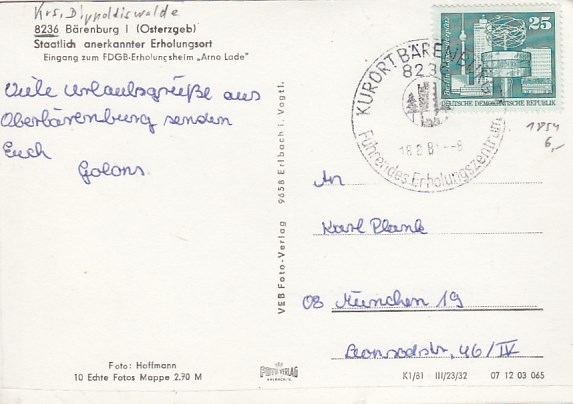 Krs. Dippoldiswalde
8236 Bärenburg I (Osterzgeb)
Staatlich anerkannter Erholungsort
Eingang zum FDGB-Erholungsheim „Arno Lade"
Viele Urlaubsgrüße aus
Oberbärenburg senden
Euch
Golons.
Foto: Hoffmann
10 Echte Fotos Mappe 2.70 M
VEB Foto-Verlag 9658 Erlbach i. Vogtl.
25
DEUTSCHE DEMOKRATISCHE REPUBLIK
KURORT BÄRENBURG
8236
18.2.81--8
Führendes Erholungszentrum
1854
6,-
An
Karl Plank
08 München 19
46/IV
FOTO VERLAG
K1/81 III/23/32 07 12 03 065